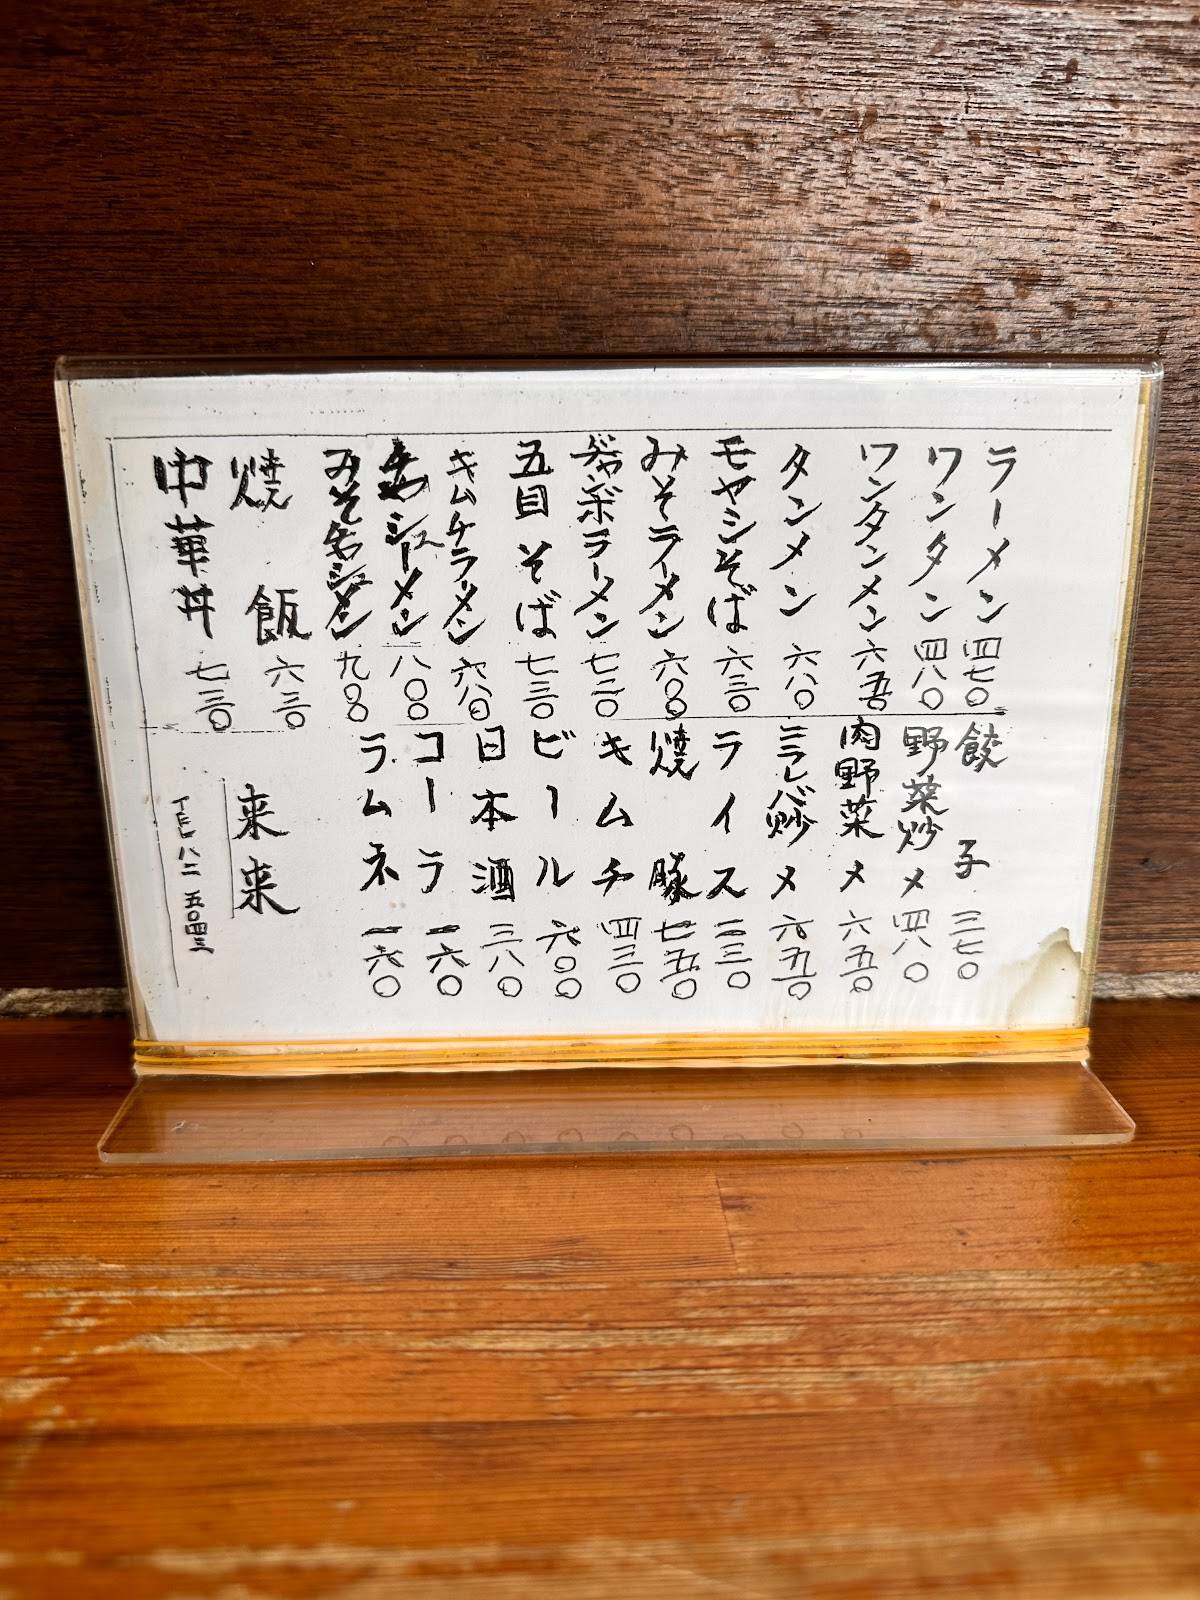 ラーメン 四七〇
ワンタン 四八〇
ワンタンメン 六五〇
タンメン 六八〇
モヤシそば 六三〇
みそラーメン 六八〇
ジャンボラーメン 七二〇
五目そば 七三〇
キムチラーメン 六八〇
チャーシューメン 八〇〇
みそチャーシューメン 九〇〇
焼飯 六三〇
中華丼 七三〇
餃子 三七〇
野菜炒メ 四八〇
肉野菜メ 六五〇
ニラレバ炒メ 六五〇
ライス 二三〇
焼豚 七五〇
キムチ 四三〇
ビール 六〇〇
日本酒 三八〇
コーラ 一六〇
ラムネ 一六〇
来来
TEL 八二 五〇四三